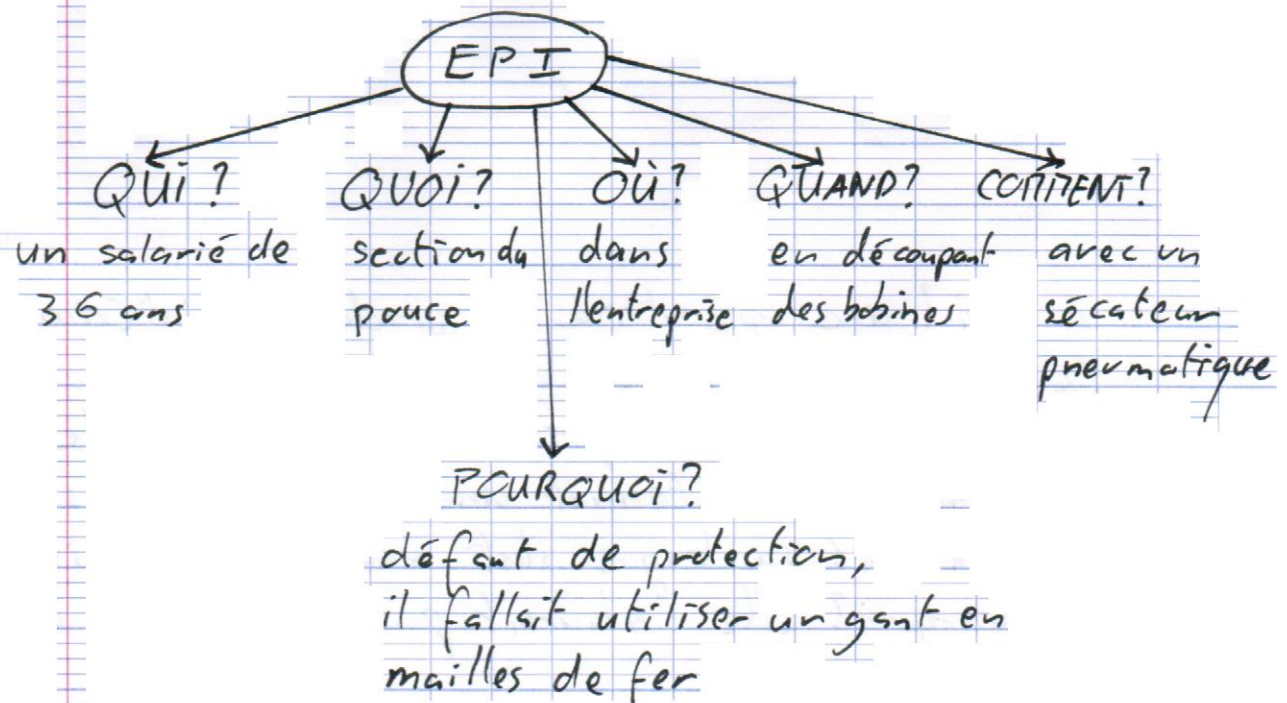 EPI
QUI ?
un salarié de
36 ans
QUOI ?
section du
pouce
OÙ ?
dans
l'entreprise
QUAND ?
en découpant
des bobines
COMMENT ?
avec un
sécateur
pneumatique
POURQUOI ?
défaut de protection,
il fallait utiliser un gant en
mailles de fer